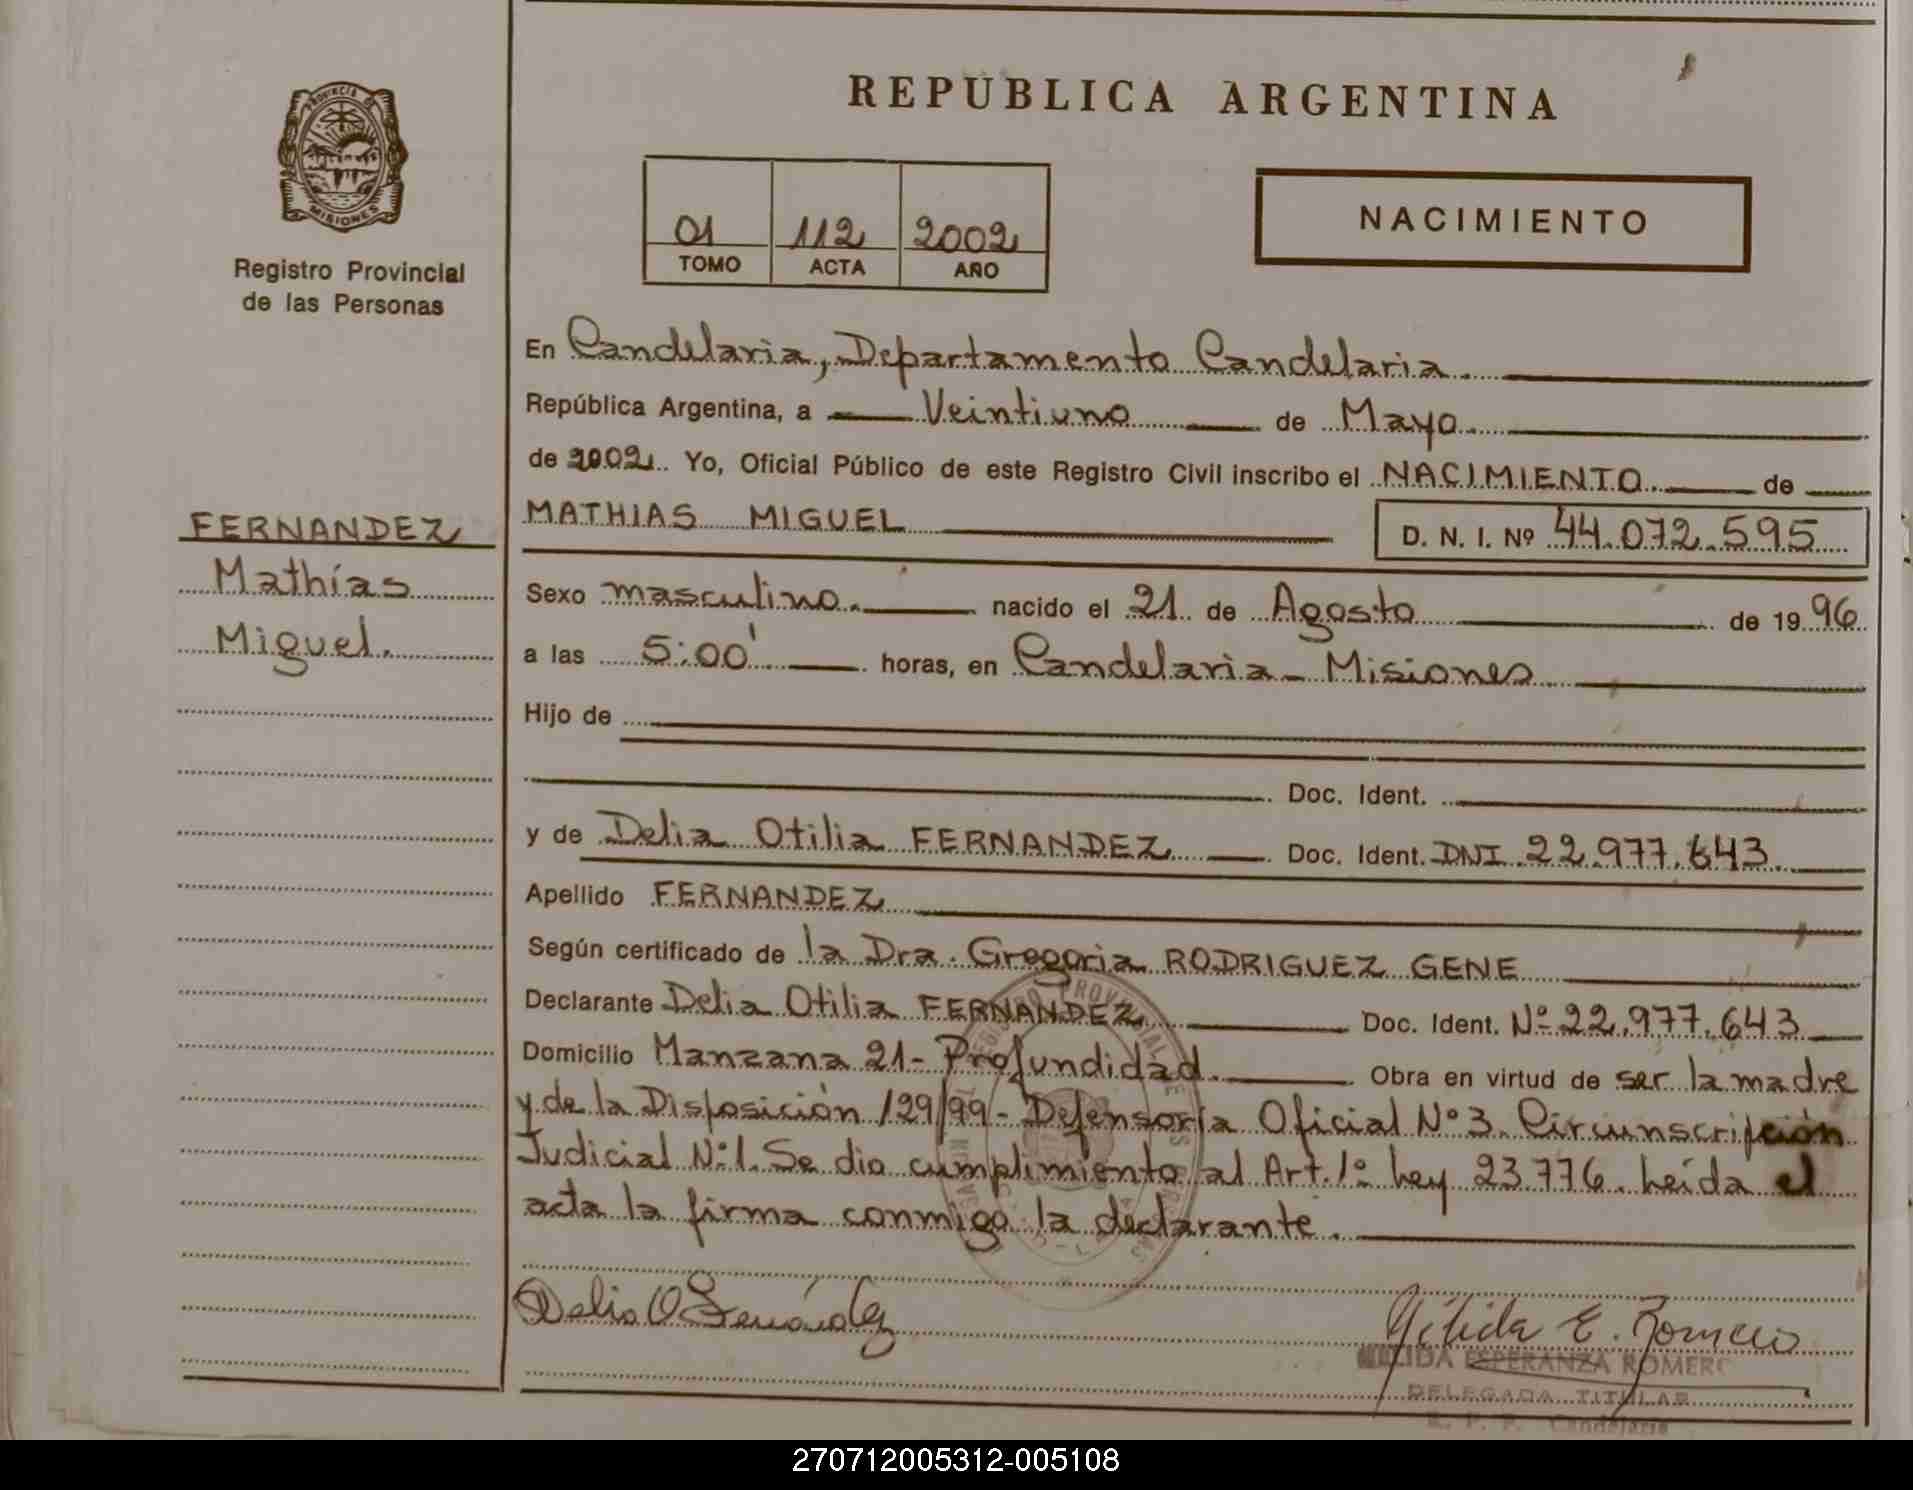 PROVINCIA DE
MISIONES
Registro Provincial
de las Personas
FERNANDEZ
Mathías
Miguel.
REPUBLICA ARGENTINA
01 112 2002
TOMO ACTA AÑO
NACIMIENTO
En Candelaria, Departamento Candelaria.
República Argentina, a Veintiuno de Mayo.
de 2002. Yo, Oficial Público de este Registro Civil inscribo el NACIMIENTO. de
MATHIAS MIGUEL D. N. I. Nº 44.072.595
Sexo masculino. nacido el 21 de Agosto de 1996
a las 5:00' horas, en Candelaria - Misiones
Hijo de
Doc. Ident.
y de Delia Otilia FERNANDEZ Doc. Ident. DNI 22.977.643.
Apellido FERNANDEZ
Según certificado de la Dra. Gregoria RODRIGUEZ GENE
Declarante Delia Otilia FERNANDEZ Doc. Ident. Nº 22.977.643
Domicilio Manzana 21 - Profundidad. Obra en virtud de ser la madre
y de la Disposición 129/99 - Defensoría Oficial Nº 3. Circunscripción
Judicial Nº 1. Se dio cumplimiento al Art. 1º Ley 23.776. Leída el
acta la firma conmigo la declarante.
Delia O Fernández
Nélida E. Romero
NELIDA ESPERANZA ROMERO
DELEGADA TITULAR
R. P. P. Candelaria
270712005312-005108